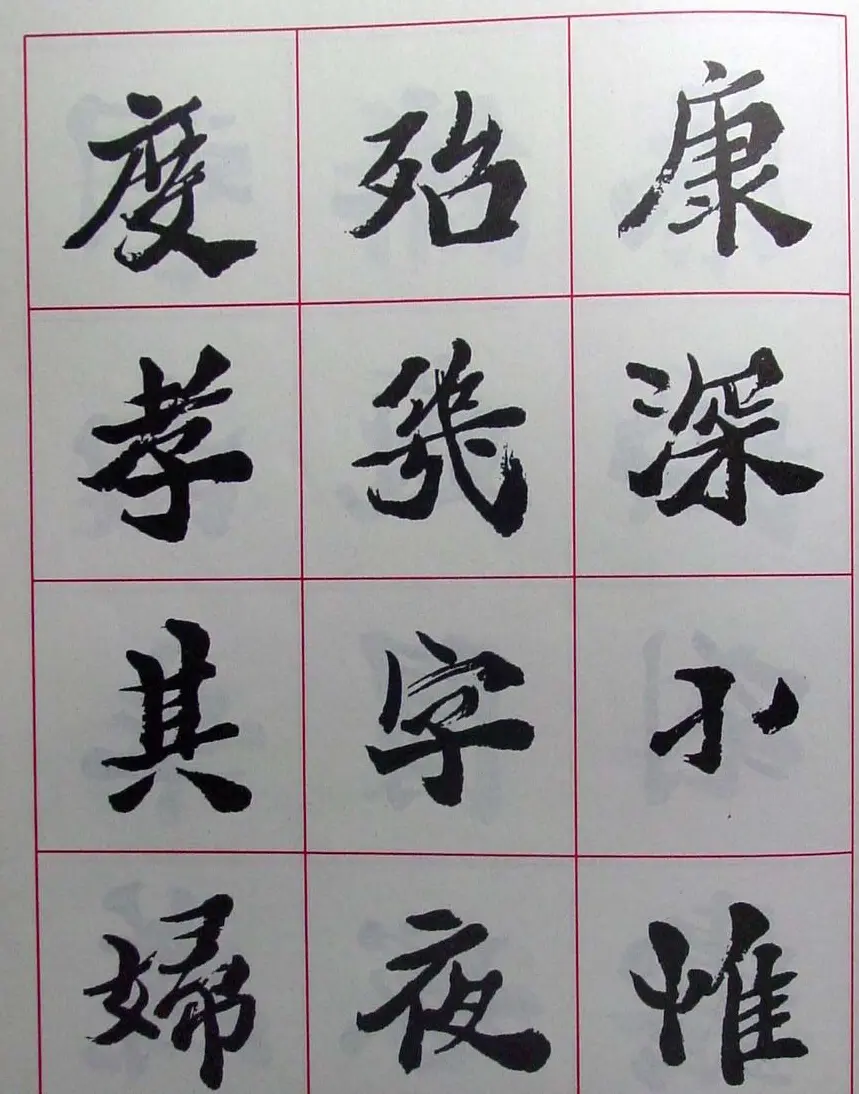 康深小惟
殆幾字夜
度孝其婦